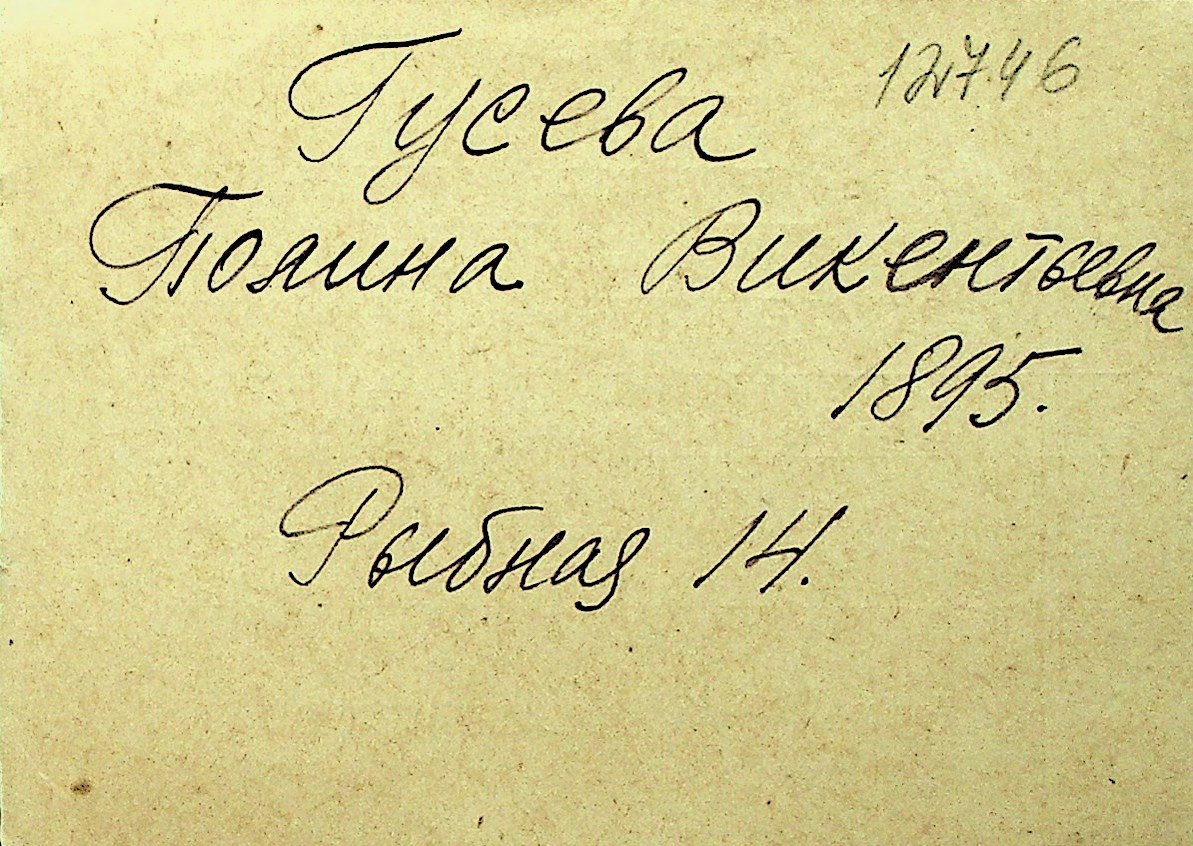 12746
Гусева
Полина Викентьевна
1895.
Рыбная 14.